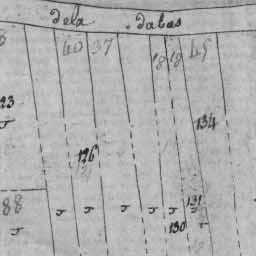 dela dabas
40 37 18 18 45
23
134
126
88
131
130